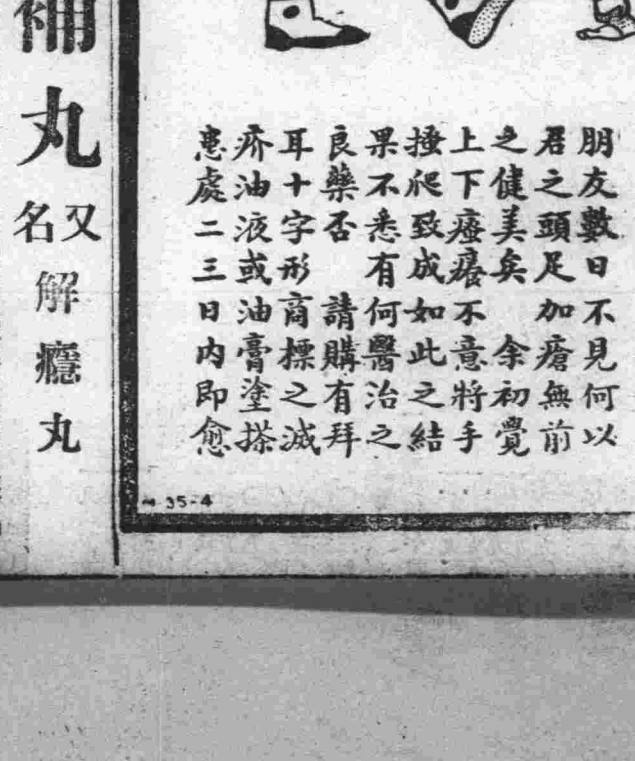 朋友數日不見何以
君之頭足加瘡無前
之健美矣 余初覺
上下癢不意將手
搔爬致成如此之結
果不悉有何醫治之
良藥否 請購有拜
耳十字形商標之滅
疥油液或油膏塗搽
患處二三日内即愈
35-4
補丸
又名
解癮丸